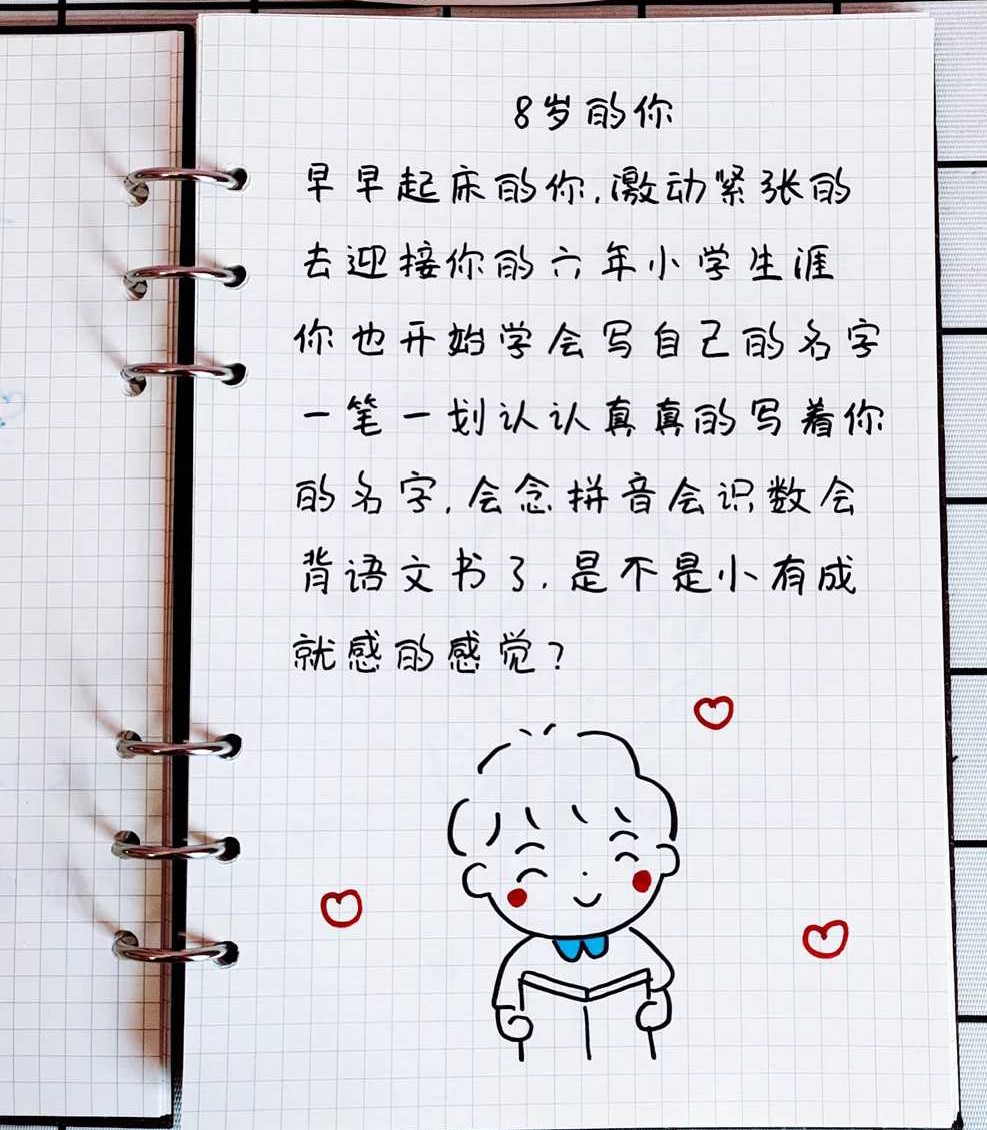 8岁的你
早早起床的你,激动紧张的
去迎接你的六年小学生涯
你也开始学会写自己的名字
一笔一划认认真真的写着你
的名字,会念拼音会识数会
背语文书了,是不是小有成
就感的感觉?